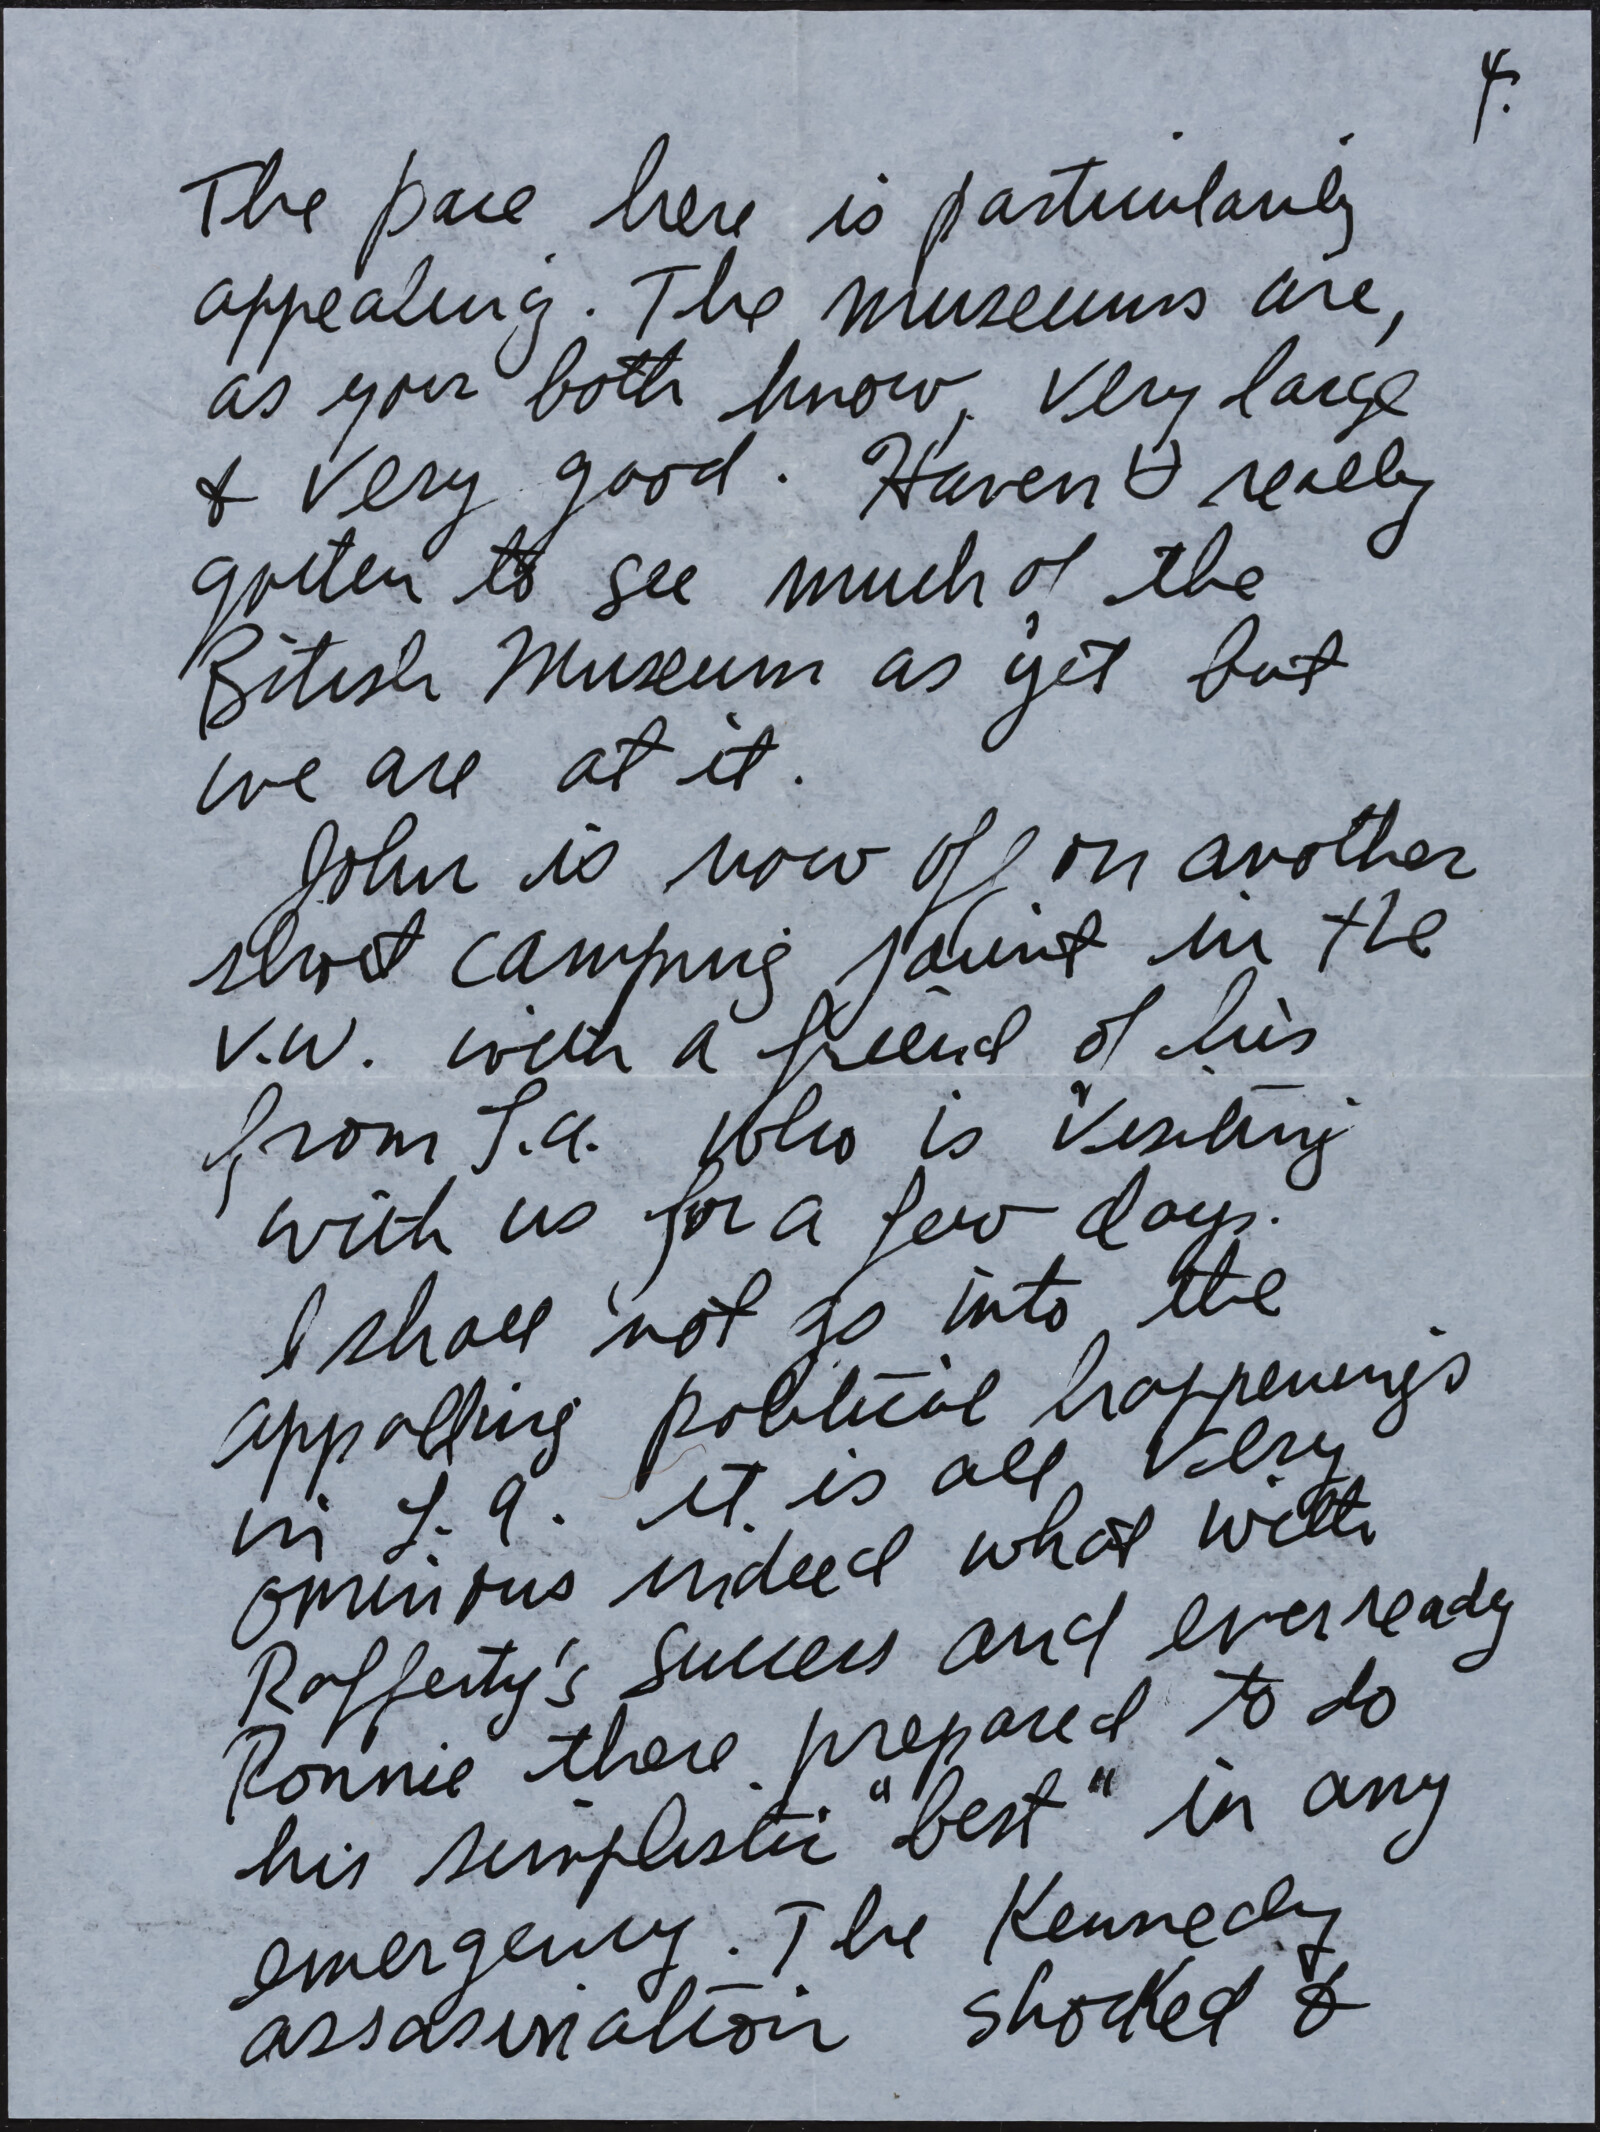 4.
The pace here is particularly
appealing. The museums are,
as you both know, very large
& very good. Haven't really
gotten to see much of the
Bitish Museum as yet but
we are at it.
John is now off on another
short camping jaunt in the
V.W. with a friend of his
from L.A. who is visiting
with us for a few days.
I shall not go into the
appalling political happenings
in L.A. it is all very
ominous indeed what with
Rafferty's success and everready
Ronnie there prepared to do
his simplistic "best" in any
emergency. The Kennedy
assasination shocked &